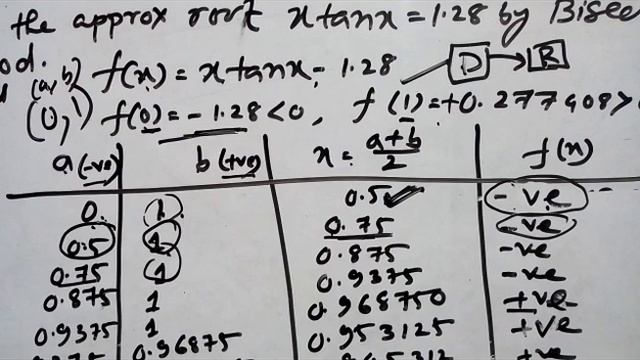 the approx root x tanx = 1.28 by Bisec
od.
(a, b) f(x) = x tanx - 1.28 D → R
(0, 1) f(0) = - 1.28 < 0, f(1) = +0.277408 >
a (-ve) b (+ve) x = a+b/2 f(x)
0. 1 0.5 ✓ - ve
0.5 1 0.75 - ve
0.75 1 0.875 - ve
0.875 1 0.9375 - ve
0.9375 1 0.968750 + ve
0.96875 0.953125 + ve